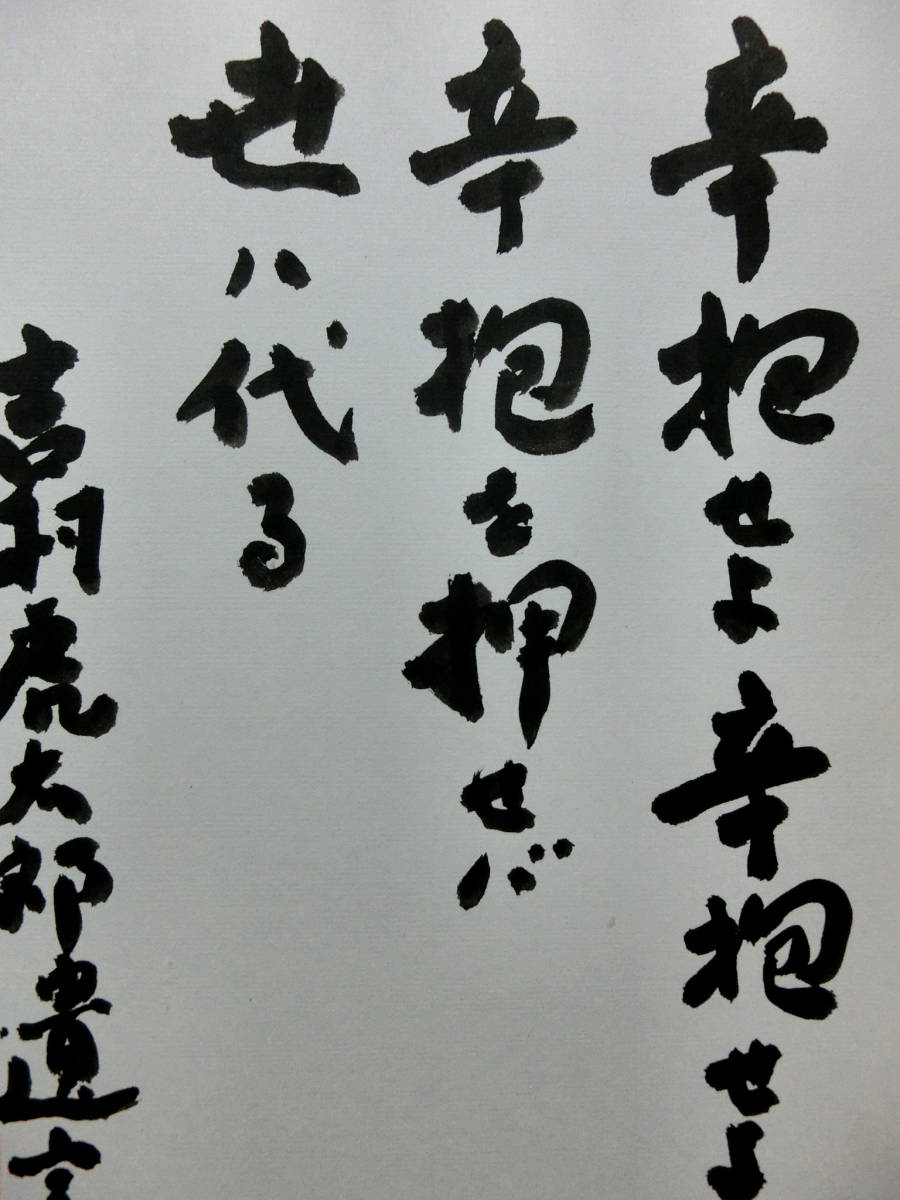 辛抱せよ辛抱せよ
辛抱を押せば
世ハ代る
吉村虎太郎遺言